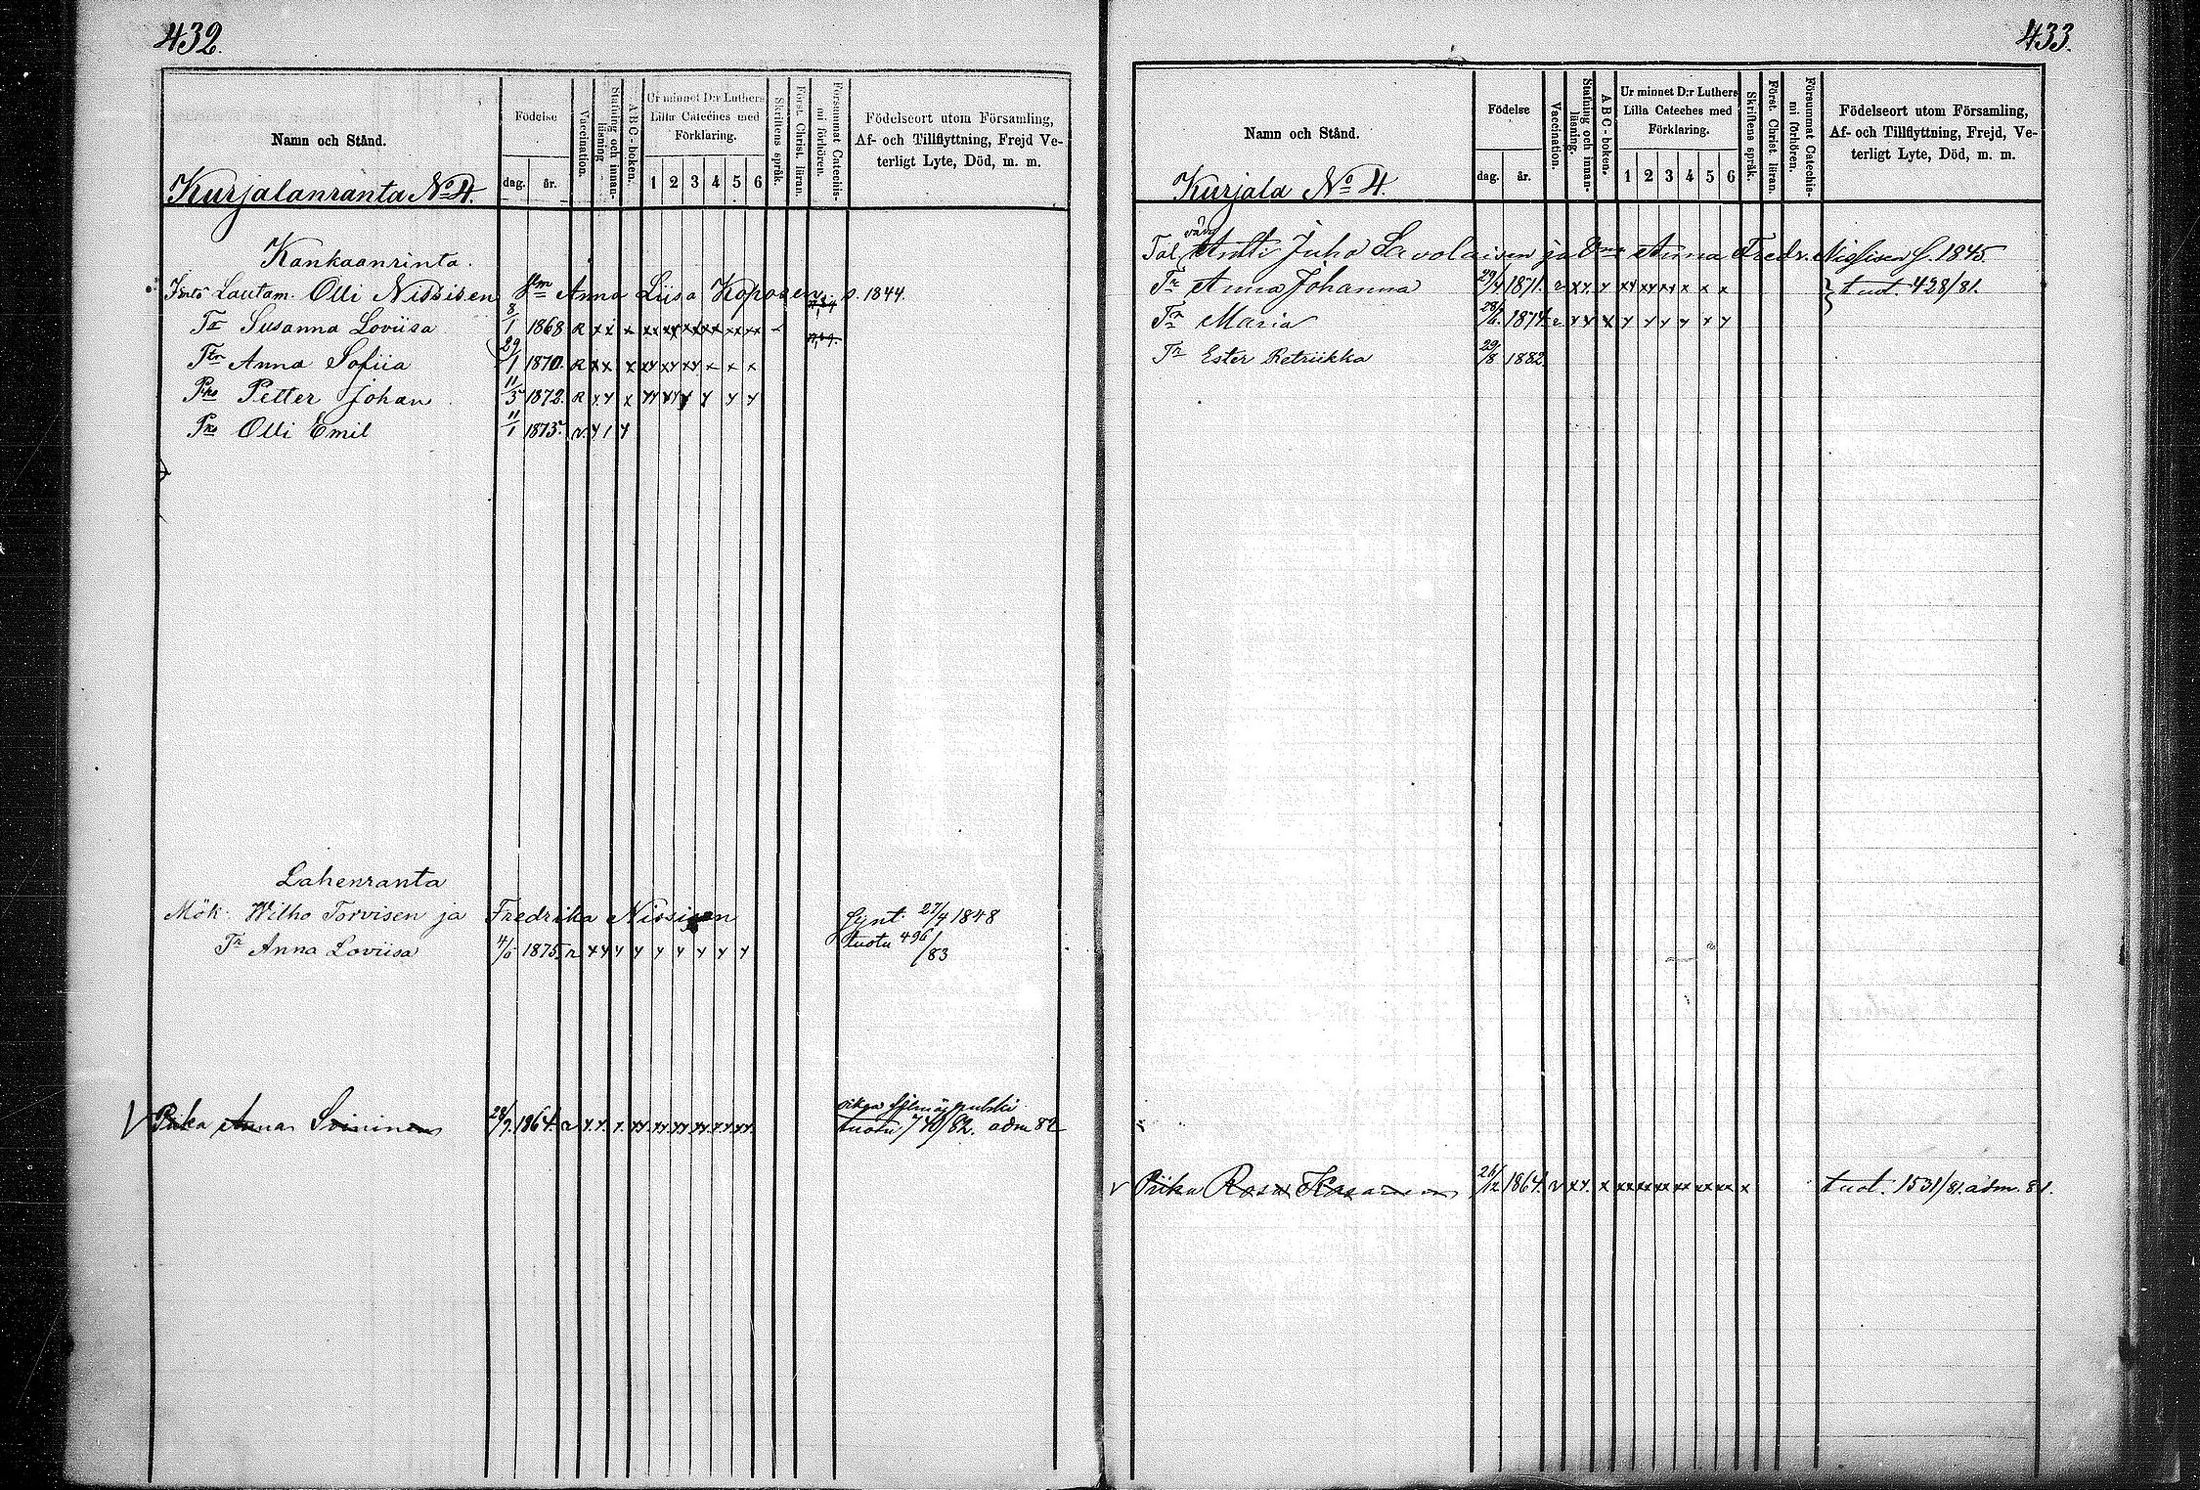 432.
Namn och Stånd.
Födelse
dag. år.
Vaccination.
Stafning och innan-läsning
A B C - boken.
Ur minnet D:r Luthers
Lilla Cateches med
Förklaring.
1 2 3 4 5 6
Skriftens språk.
Först. Christ. läran.
Försummat Catechis-mi förhören.
Födelseort utom Församling,
Af- och Tillflyttning, Frejd Ve-
terligt Lyte, Död, m. m.
Kurjalanranta No 4.
Kankaanrinta.
Lautam. Olli Nissisen Anna Liisa Koposen s. 1844.
Tr Susanna Loviisa 8/1 1868 R x x x xx xx xx xx xx xx
Ttr Anna Sofiia 29/1 1870. R x x x xx xx xx x x x
Pka Petter Johan 11/5 1872. R
Pka Olli Emil 11/1 1875.
Lahenranta
Mök. Wilho Torvisen ja Fredrika Nissisen Synt. 27/4 1848
Tr Anna Loviisa 1875. tuotu 496/83
Piika Anna Soininen 1864. tuotu 740/82. adm 82
433.
Namn och Stånd.
Födelse
dag. år.
Vaccination.
Stafning och innan-läsning.
A B C - boken.
Ur minnet D:r Luthers
Lilla Cateches med
Förklaring.
1 2 3 4 5 6
Skriftens språk.
Först. Christ. läran.
Försummat Catechis-mi förhören.
Födelseort utom Församling,
Af- och Tillflyttning, Frejd, Ve-
terligt Lyte, Död, m. m.
Kurjala No 4.
Tal. Antti Juho Savolaisen ja Anna Fredr. s. 1845.
Tr Anna Johanna 29/4 1871. tuot. 428/81.
Tr Maria 1874.
Tr Ester Retriikka 29/8 1882.
Piika Rosa Kasanen 26/12 1864. tuot. 1531/81. adm. 81.